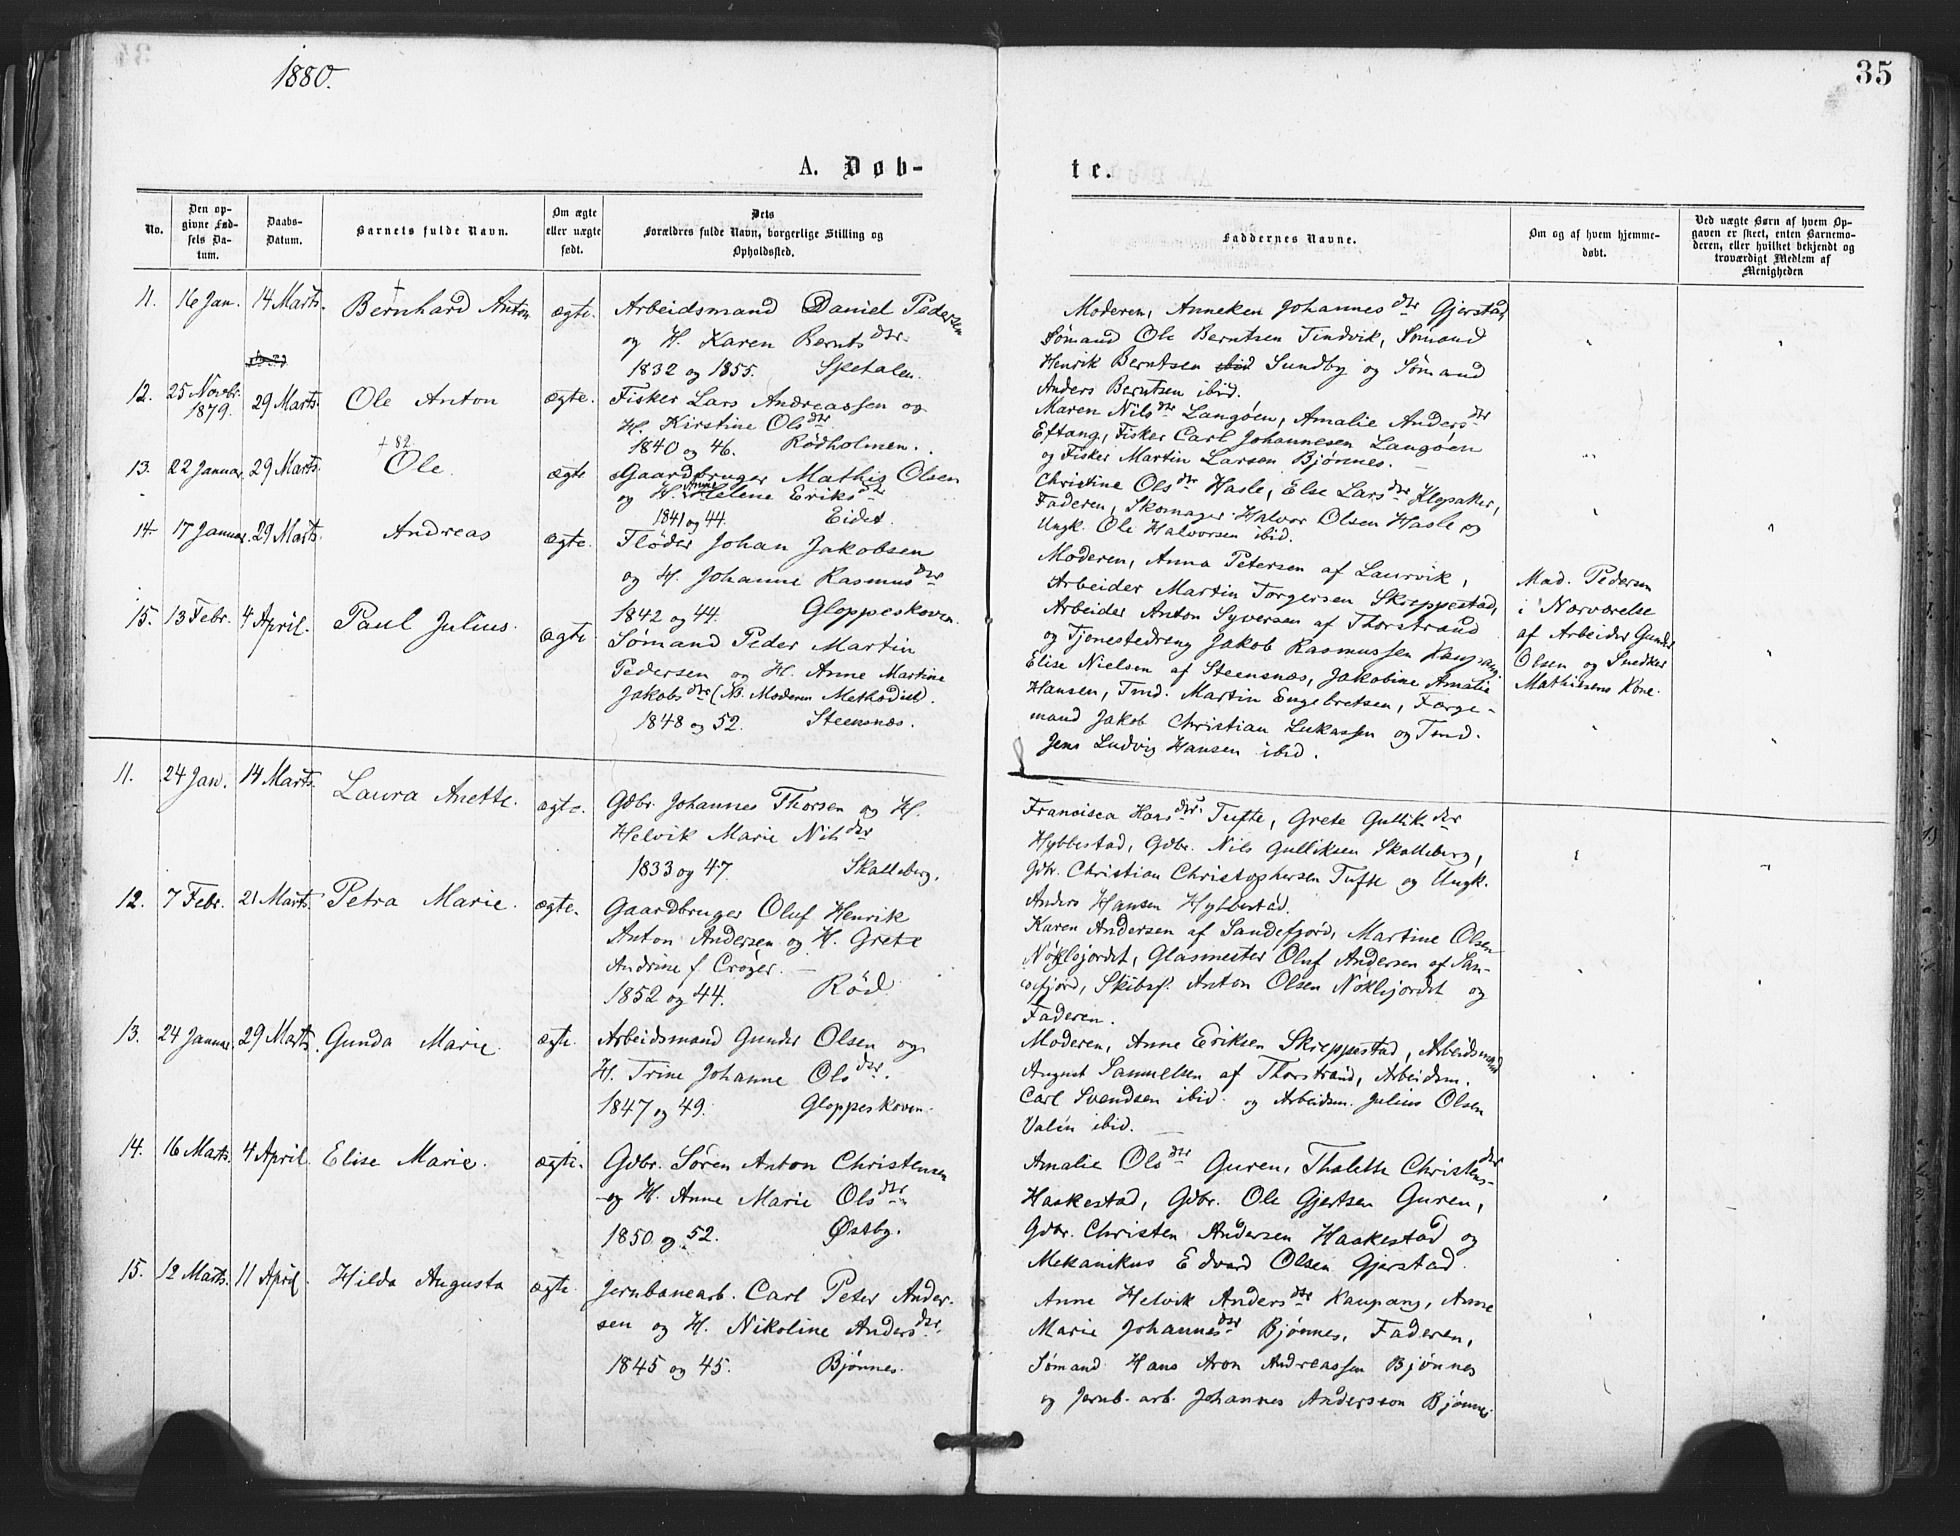 1880.
35
A. Døb-
te.
No.
Den op-
givne Fød-
sels Da-
tum.
Daabs-
Datum.
Barnets fulde Navn.
Om ægte
eller uægte
født.
Dets
Forældres fulde Navn, borgerlige Stilling og
Opholdssted.
Faddernes Navne.
Om og af hvem hjemme-
døbt.
Ved uægte Børn af hvem Op-
gaven er skeet, enten Barnemo-
deren, eller hvilket bekjendt og
troværdigt Medlem af
Menigheden
11. 16 Jan. 14 Marts. Bernhard Anton ægte.
Arbeidsmand Daniel Pedersen
og H. Karen Bernts dtr.
1832 og 1855. Spetalen.
Moderen, Anneken Johannes dtr Gjerstad,
Sømand Ole Berntsen Tindvik, Sømand
Henrik Berntsen ibid Sundby og Sømand
Anders Berntsen ibid.
12. 25 Novbr. 1879. 29 Marts. Ole Anton ægte.
Fisker Lars Andreassen og
H. Kirstine Ols dtr
1840 og 46. Rødholmen.
Maren Nils dtr Langøen, Amalie Anders dtr
Eftang, Fisker Carl Johannesen Langøen
og Fisker Martin Larsen Bjønnes.
13. 22 Januar. 29 Marts. + 82 Ole. ægte
Gaardbruger Mathis Olsen
og H. Anne Helene Eriks dtr
1841 og 44. Eidet.
Christine Ols dtr Hasle, Else Lars dtr Klepaker,
Faderen, Skomager Halvor Olsen Hasle og
Ungk. Ole Halvorsen ibid.
14. 17 Januar. 29 Marts. Andreas ægte.
Fløder Johan Jakobsen
og H. Johanne Rasmus dtr
1842 og 44. Gloppeskoven.
Moderen, Anna Petersen af Laurvik,
Arbeider Martin Torgersen Skreppestad,
Arbeider Anton Syversen af Thorstrand
og Tjenestedreng Jakob Rasmussen Kaupang
Mad. Pedersen
i Nærværelse
af Arbeider Gunder
Olsen og Snedker
Mathisens Kone.
15. 13 Febr. 4 April. Paul Julius. ægte
Sømand Peder Martin
Pedersen og H. Anne Martine
Jakobs dtr (NB. Moderen Methodist).
1848 og 52. Steensnæs.
Elise Nielsen af Steensnæs, Jakobine Amalie
Hansen, Tmd. Martin Engebretsen, Færge-
mand Jakob Christian Lukassen og Tmd.
Jens Ludvig Hansen ibid.
11. 24 Jan. 14 Marts. Laura Anette. ægte.
Gdbr. Johannes Thorsen og H.
Helvik Marie Nils dtr
1833 og 47. Skalleberg.
Francisca Hans dtr Tufte, Grete Gullik dtr
Hybbestad, Gdbr. Nils Gulliksen Skalleberg,
Gdbr. Christian Christophersen Tufte og Ungk.
Anders Hansen Hybbestad.
12. 7 Febr. 21 Marts. Petra Marie. ægte.
Gaardbruger Oluf Henrik
Anton Andersen og H. Grete
Andrine f. Crøger.
1852 og 44. Rød.
Karen Andersen af Sandefjord, Martine Olsen
Nøklegjordet, Glasmester Oluf Andersen af San-
defjord, Skibsf. Anton Olsen Nøklegjordet og
Faderen.
13. 24 Januar. 29 Marts. Gunda Marie. ægte.
Arbeidsmand Gunder Olsen og
H. Trine Johanne Ols dtr.
1847 og 49. Gloppeskoven.
Moderen, Anne Eriksen Skreppestad, Arbeidsmand
August Samuelsen af Thorstrand, Arbeidsm.
Carl Svendsen ibid. og Arbeidsm. Julius Olsen
Valen ibid.
14. 16 Marts. 4 April. Elise Marie. ægte.
Gdbr. Søren Anton Christensen
og H. Anne Marie Ols dtr
1850 og 52. Østby.
Amalie Ols dtr Guren, Thalette Christens dtr
Haakestad, Gdbr. Ole Gjertsen Guren,
Gdbr. Christen Andersen Haakestad og
Mekanikus Edvard Olsen Gjerstad.
15. 12 Marts. 11 April. Hilda Augusta ægte.
Jernbanearb. Carl Peter Ander-
sen og H. Nikoline Anders dtr
1845 og 45. Bjønnes.
Anne Helvik Anders dtr Kaupang, Anne
Marie Johannes dtr Bjønnes, Faderen,
Sømand Hans Aron Andreassen Bjønnes
og Jernb. arb. Johannes Andersson Bjønnes.